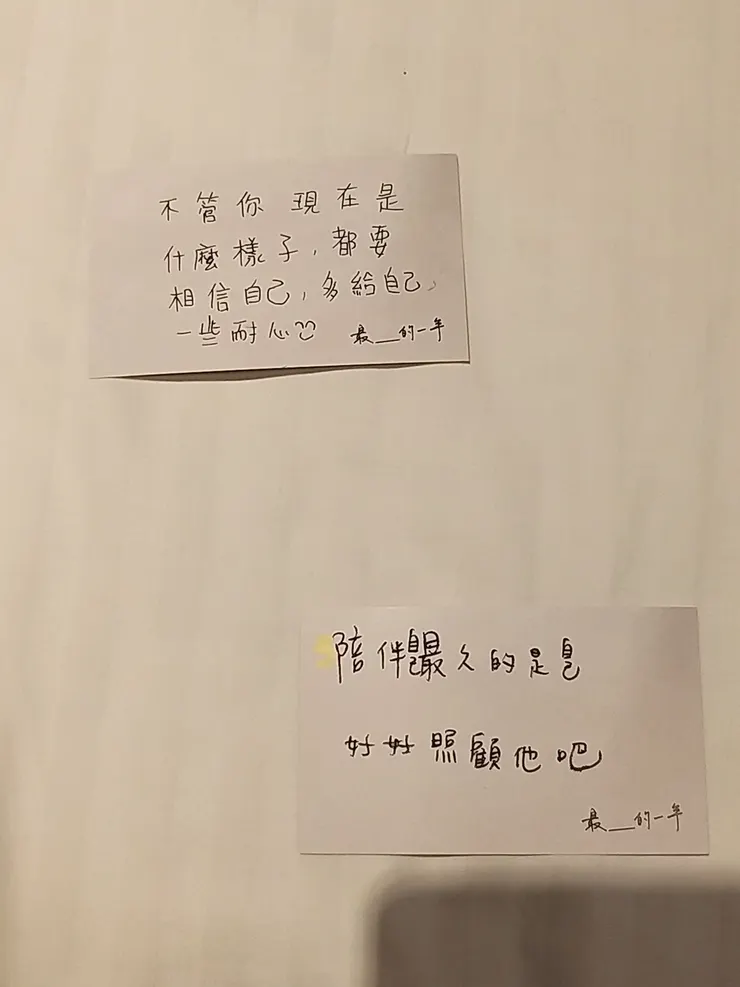 不管你 現在是
什麼樣子，都要
相信自己，多給自己，
一些耐心
最__的一年
陪伴最久的是自己
好好照顧他吧
最__的一年